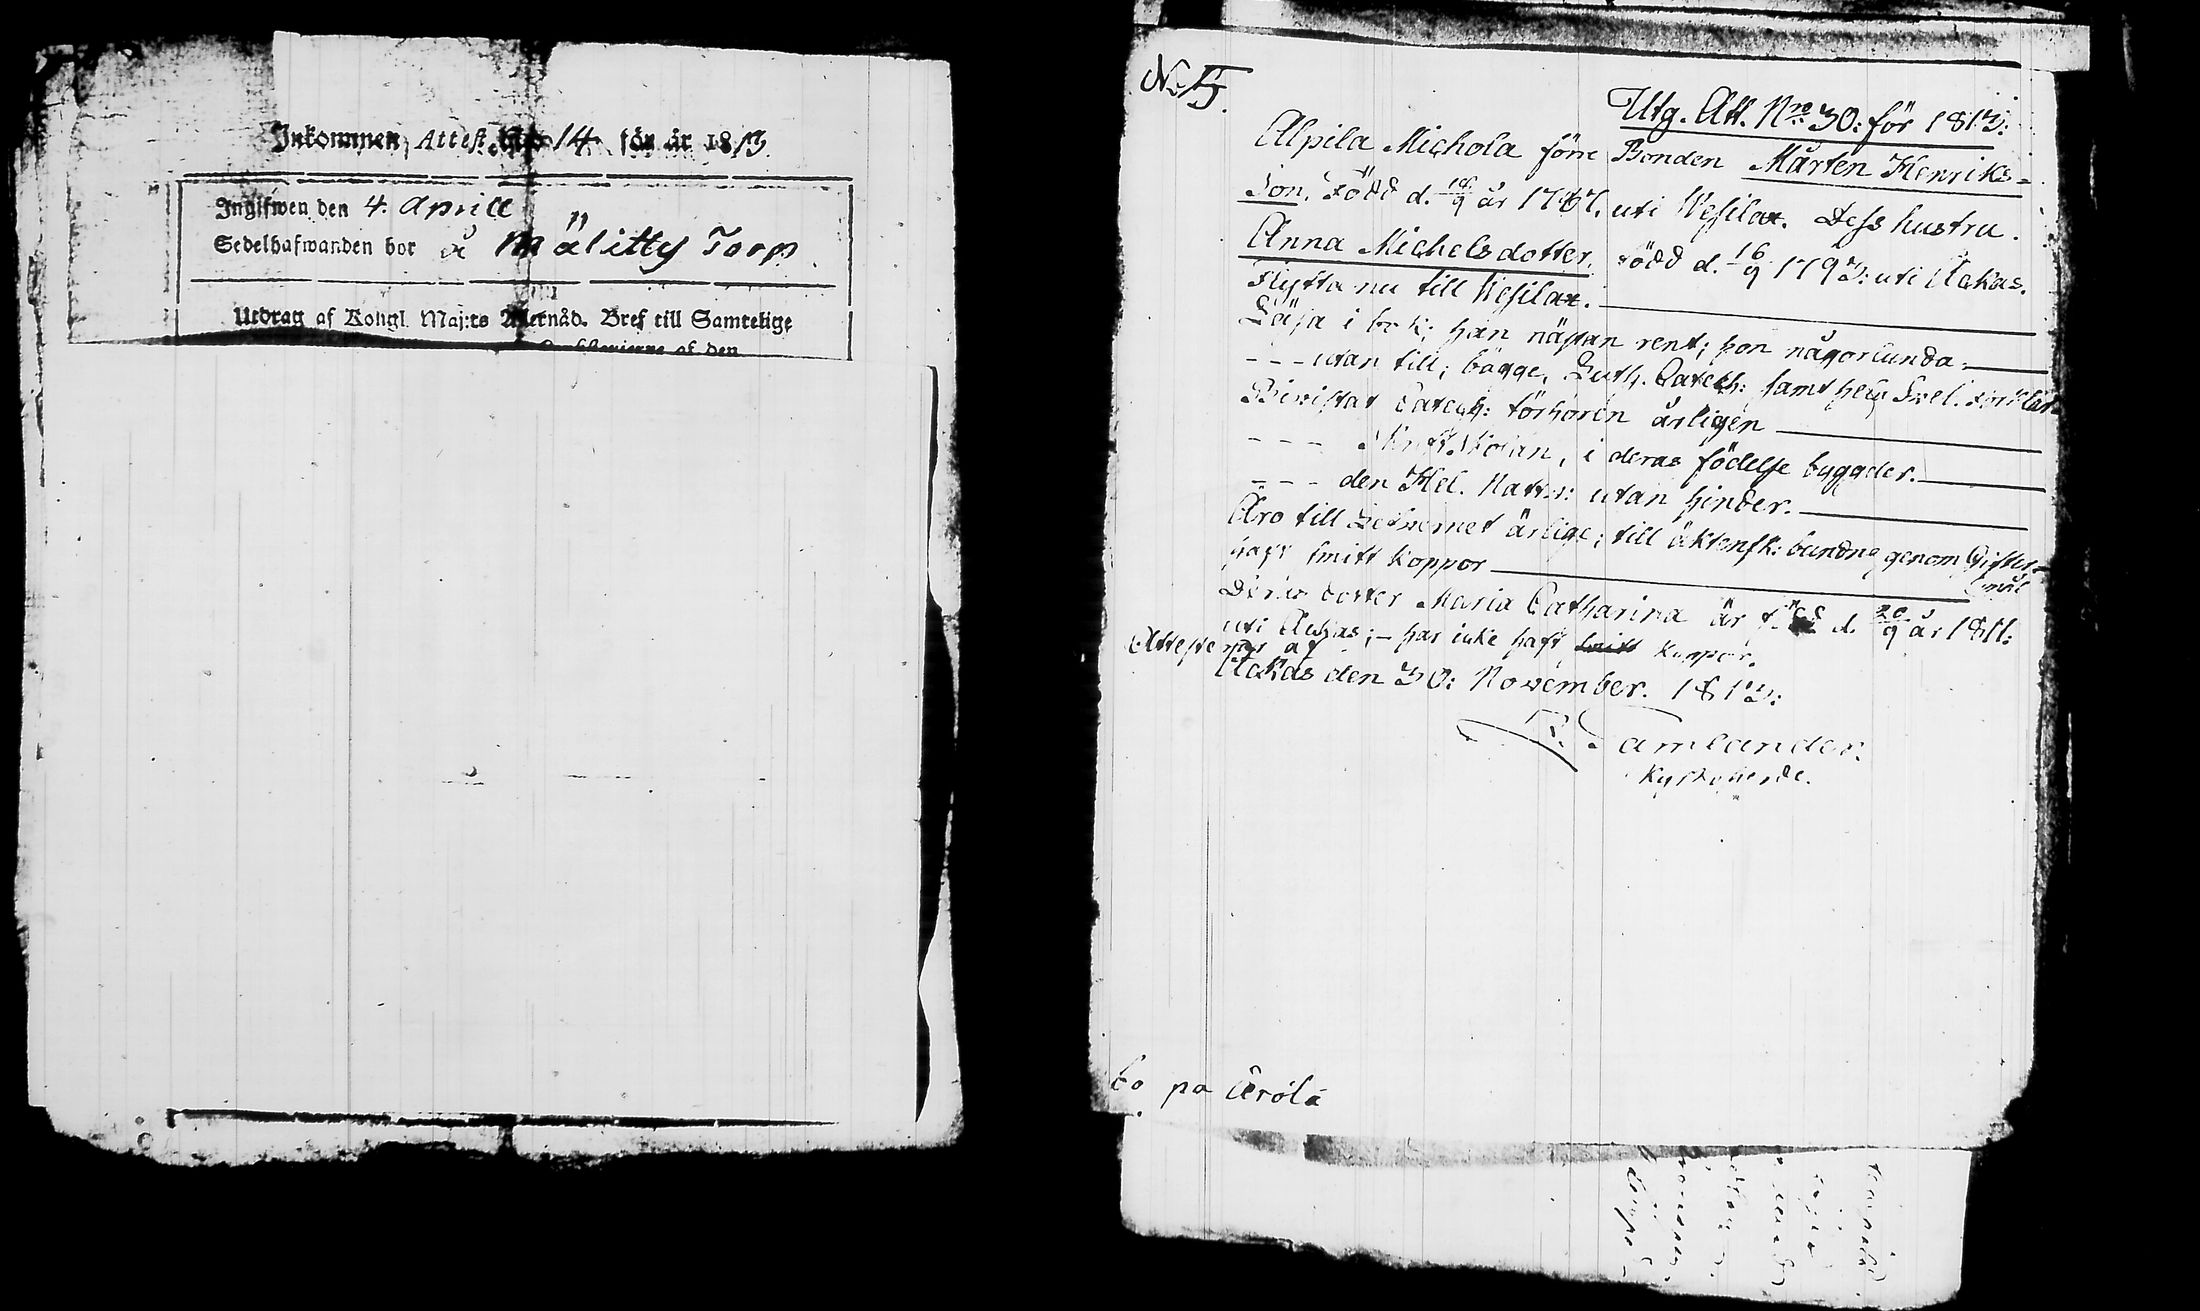 Inkommen Attest No 14 för år 1813
Ingifwen den 4. Aprill
Sedelhafwanden bor å Mälitty Torp
Utdrag af Kongl. Maj:ts Allernåd. Bref till Samtelige
af den
No 15.
Utg. Att. Nr 30: för 1813:
Alpila Michola förre Bonden Mårten Henriks-
son. Född d. 18/9 år 1787. uti Wesilax. Dess hustru.
Anna Michelsdotter, född d. 16/9 1793: uti Ackas.
Flytta nu till Wesilax.
Läsa i bok; han nästan rent; hon någorlunda.
- - - utan till; bägge, Luth. Catech: samt Svel. Förklar
Bivistat Catech: förhören årligen
- - - Skrift Skolan, i deras födelse bygder.
- - - den Hel. Nattv: utan hinder.
Äro till Lefvernet ärlige; till äktensk: bundne genom Gifter-
mål
haft smitt koppor
Deras dotter Maria Catharina är född d. 20/9 år 1811:
uti Ackas; - har icke haft koppor.
Attesteras af
Ackas den 30: November. 1813:
F. Tamlander.
Kyrkoherde.
bo på Ärölä